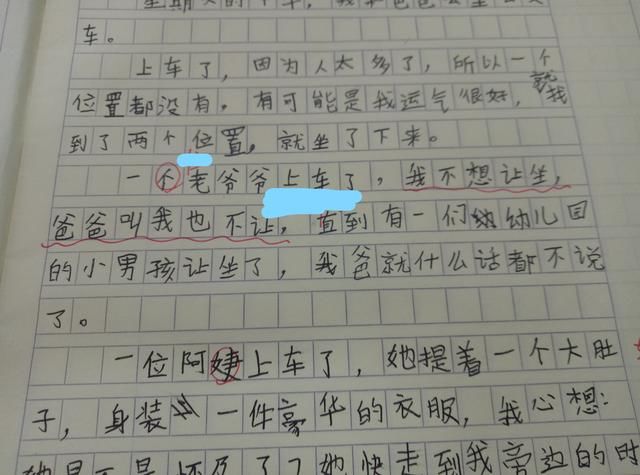 车。
上车了，因为人太多了，所以一个
位置都没有。有可能是我运气很好，就找
到了两个位置，就坐了下来。
一个老爷爷上车了，我不想让坐，
爸爸叫我也不让，直到有一们幼儿园
的小男孩让坐了，我爸就什么话都不说
了。
一位阿婕上车了，她提着一个大肚
子，身装一件豪华的衣服，我心想：
她快走到我旁边的时